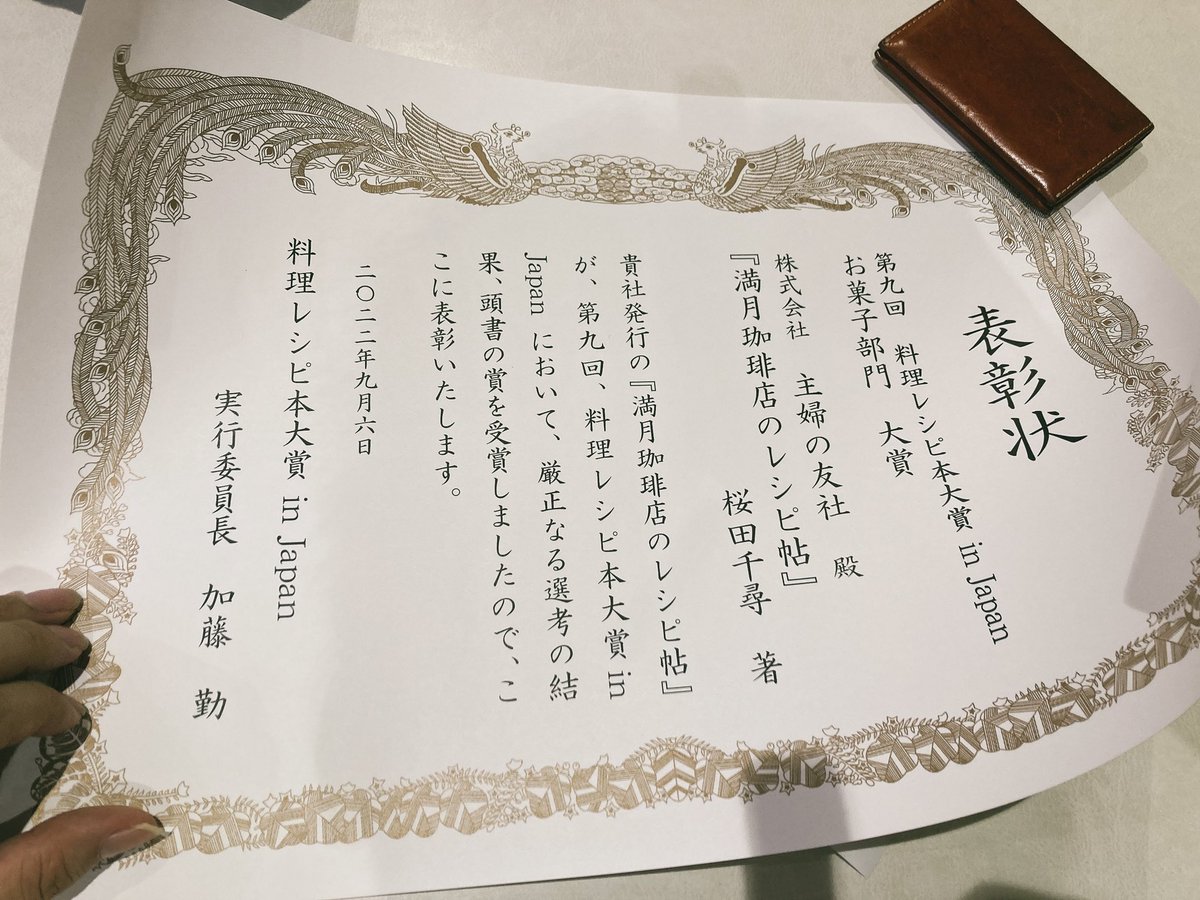 表彰状
第九回 料理レシピ本大賞 in Japan
お菓子部門 大賞
株式会社 主婦の友社 殿
『満月珈琲店のレシピ帖』
桜田千尋 著
貴社発行の『満月珈琲店のレシピ帖』
が、第九回、料理レシピ本大賞 in
Japan において、厳正なる選考の結
果、頭書の賞を受賞しましたので、こ
こに表彰いたします。
二〇二二年九月六日
料理レシピ本大賞 in Japan
実行委員長 加藤 勤